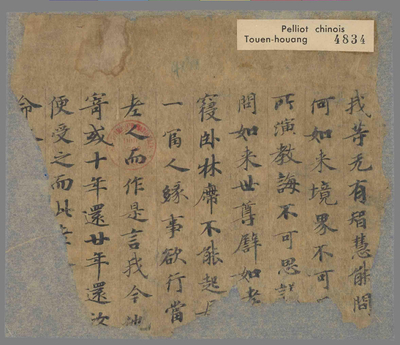 Pelliot chinois
Touen-houang 4834
我等无有智慧能問
何如来境界不可
所演教誨不可思
問如来世尊譬如老
寢卧床席不能起
一富人緣事欲行當
老人而作是言我今
寄或十年還廿年還汝
便受之而此老
命